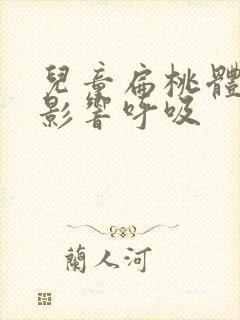 兒童扁桃體
影響呼吸
蘭人河